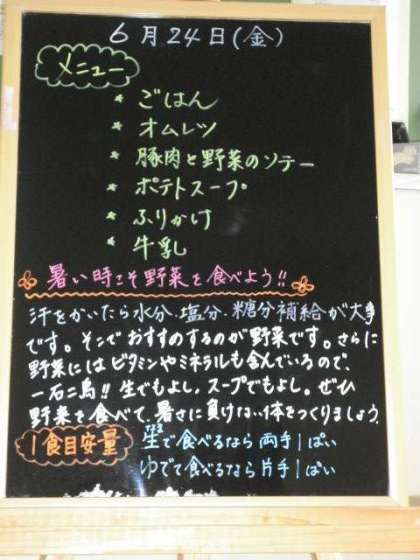 6月24日(金)
メニュー
* ごはん
* オムレツ
* 豚肉と野菜のソテー
* ポテトスープ
* ふりかけ
* 牛乳
暑い時こそ野菜を食べよう!!
汗をかいたら水分、塩分、糖分補給が大事
です。そこでおすすめするのが野菜です。さらに
野菜にはビタミンやミネラルも含んでいるので、
一石二鳥!! 生でもよし、スープでもよし。ぜひ
野菜を食べて、暑さに負けない体をつくりましょう。
1食目安量
生で食べるなら両手1ぱい
ゆでて食べるなら片手1ぱい